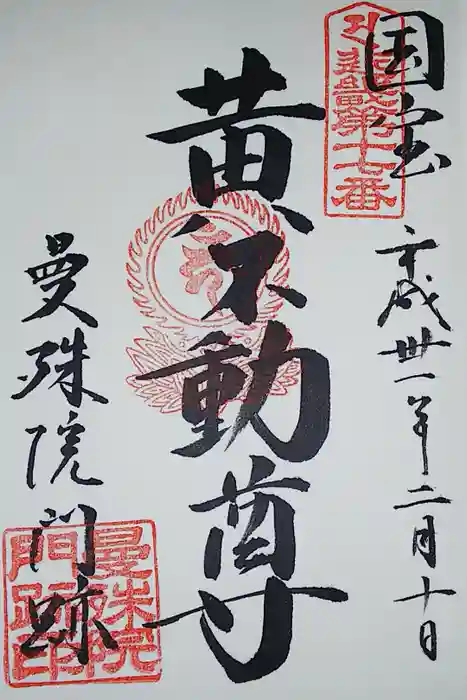 国宝
平成卅一年二月十日
黄不動尊
曼殊院門跡
第十七番
曼殊院
門跡印